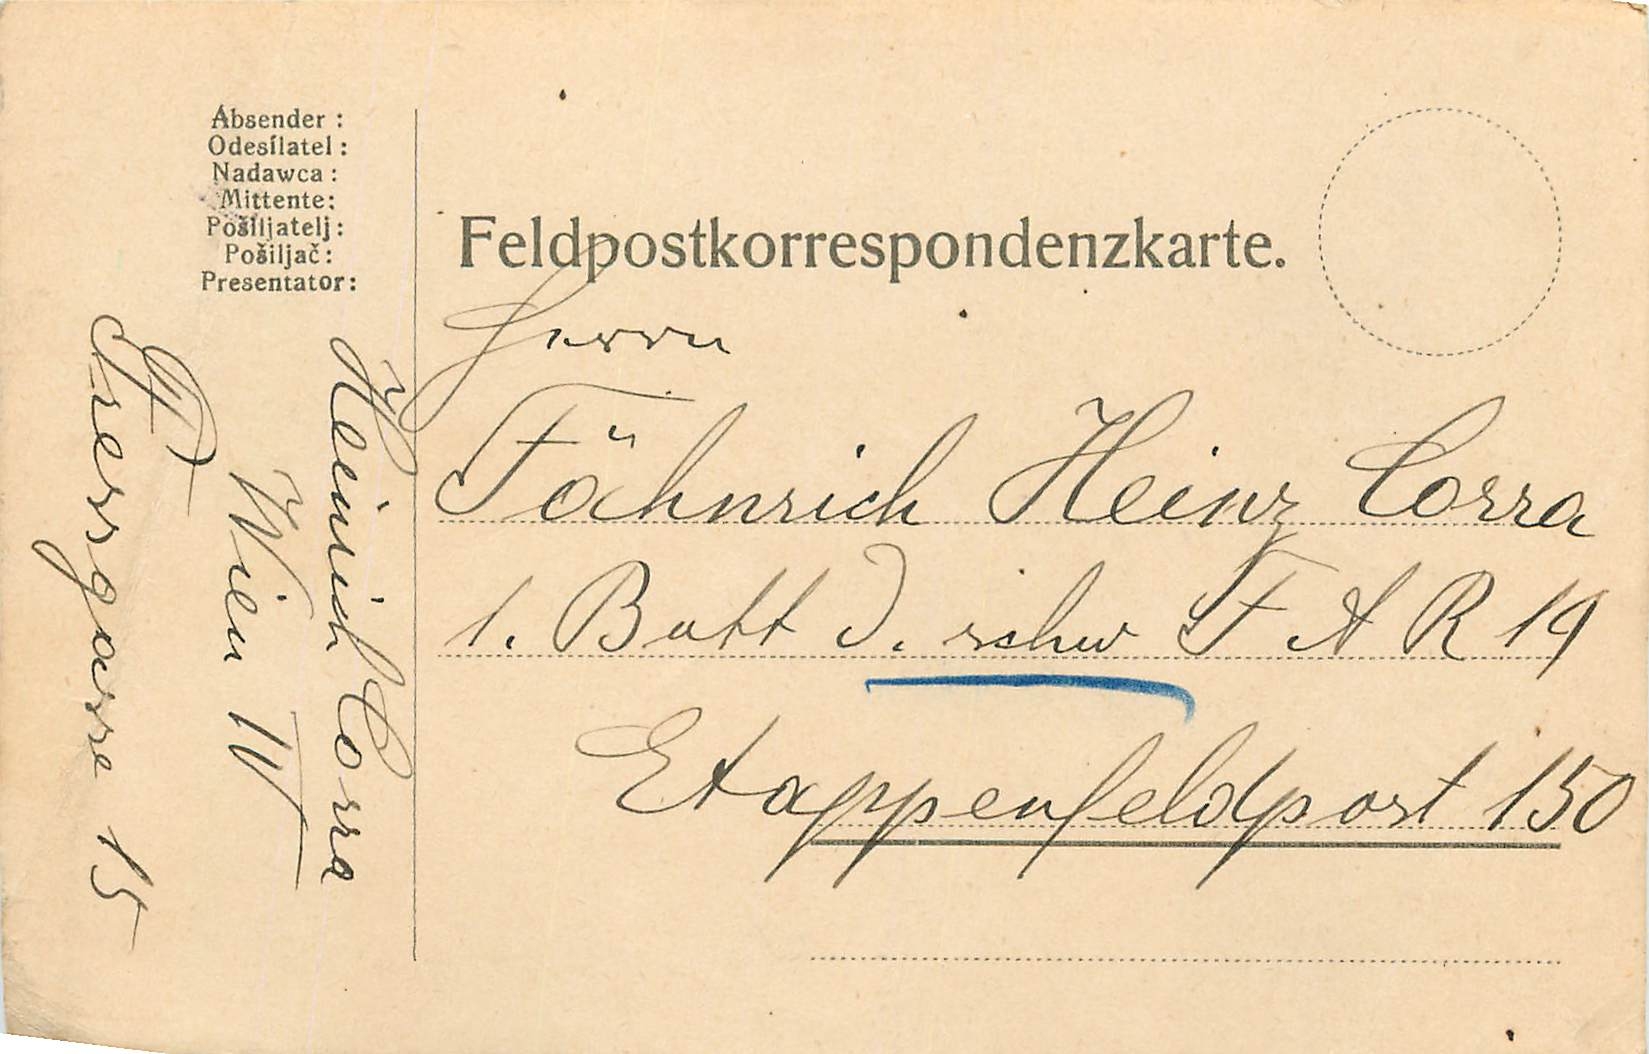 Absender :
Odesílatel :
Nadawca :
Mittente:
Pošiljatelj :
Pošiljač :
Presentator:
Heinrich Corra
Wien IV
Pressgasse 15
Feldpostkorrespondenzkarte.
Herrn
Fähnrich Heinz Corra
1. Batt D. schw F A R 19
Etappenfeldpost 150